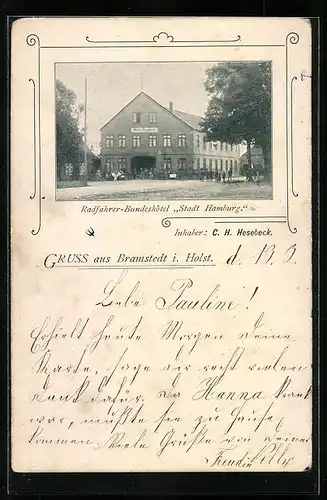 Radfahrer-Bundeshôtel „Stadt Hamburg.“
Inhaber: C. H. Hesebeck.
GRUSS aus Bramstedt i. Holst. d. 13. 9.
Liebe Pauline!
Erhielt heute Morgen deine
Karte, sage dir recht vielen
Dank dafür. Da Hanna krank
war, mußte sie zu Hause
kommen. Viele Grüße von deiner
Freundin